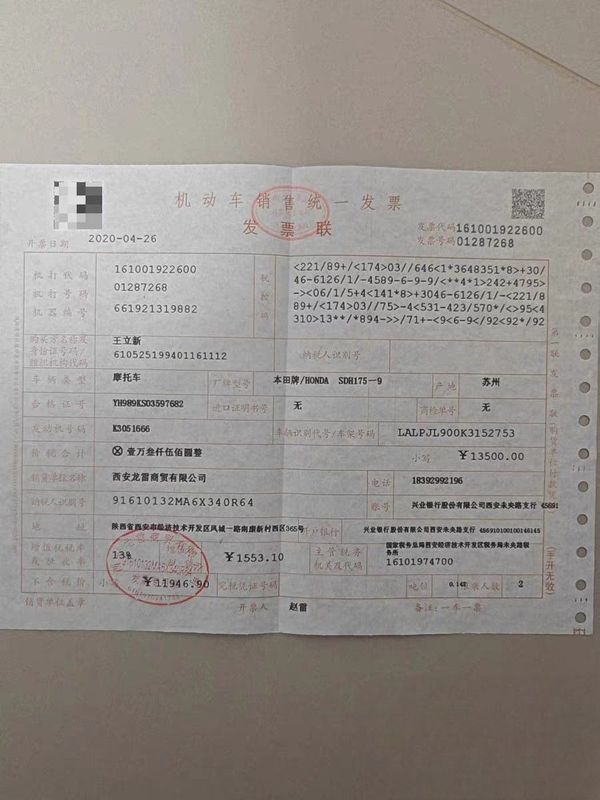 机动车销售统一发票
发票联
发票代码161001922600
发票号码01287268
开票日期 2020-04-26
机打代码 161001922600
机打号码 01287268
机器编号 661921319882
税控码
<221/89+/<174>03//646<1*3648351*8>+30/
46-6126/1/-4589-6-9-9/<**4*1>242+4795>
-><06/1/5+4<141*8>+3046-6126/1/-<221/8
89+/<174>03//75>-4-531-423/570*/<>95<4
310>13**/*894->>/71+-<9<6-9/<92<92*/92
购买方名称及身份证号码/组织机构代码
王立新
610525199401161112
纳税人识别号
车辆类型 摩托车 厂牌型号 本田牌/HONDA SDH175-9 产地 苏州
合格证号 YH989KS03597682 进口证明书号 无 商检单号 无
发动机号码 K3051666 车辆识别代号/车架号码 LALPJL900K3152753
价税合计 ⊗壹万叁仟伍佰圆整 小写 ￥13500.00
销货单位名称 西安龙雷商贸有限公司 电话 18392992196
纳税人识别号 91610132MA6X340R64 账号 兴业银行股份有限公司西安未央路支行 45691
地址 陕西省西安市经济技术开发区凤城一路南康新村西区365号 开户银行 兴业银行股份有限公司西安未央路支行 456910100100146145
增值税税率或征收率 13% 增值税税额 ￥1553.10 主管税务机关及代码 国家税务总局西安经济技术开发区税务局未央路税务所
16101974700
不含税价 小写 ￥11946.90 完税凭证号码 吨位 限乘人数 2
销货单位盖章 开票人 赵雷 备注:一车一票
第一联 发票联 (购货单位付款凭证)
(手开无效)